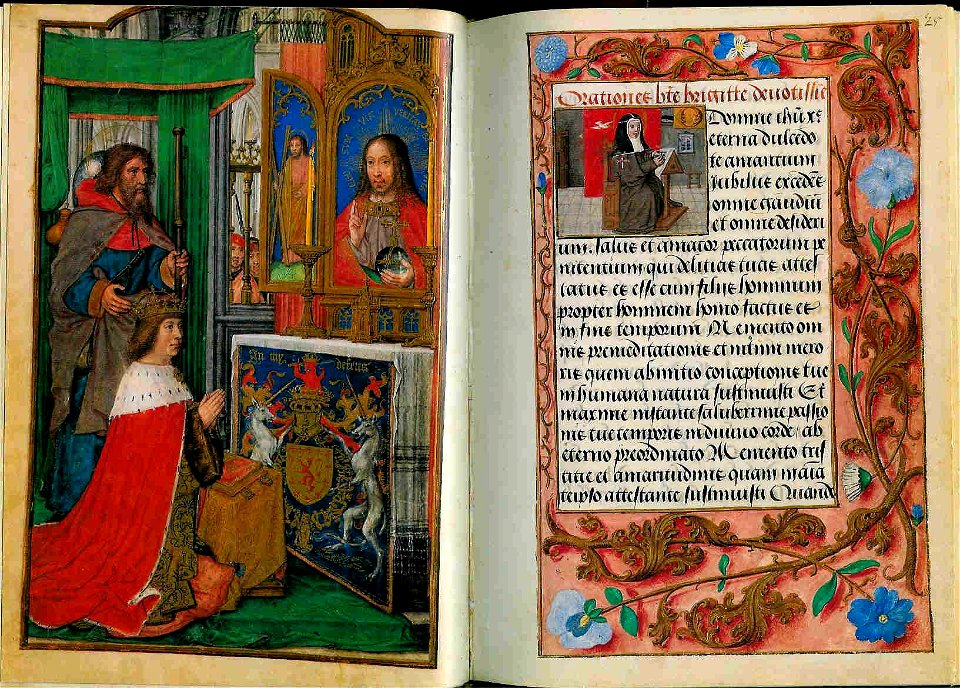 VIA VERITAS
In my defens
25
Orationes bte brigitte deuotissie
Domine ihu xpe
eterna dulcedo
te amantium
Jubilus excedes
omne gaudiu
et omne desideri
um. salus et amator peccatorum pe
nitentium qui delitias tuas attes
tatus es esse cum filijs hominum
propter hominem homo factus es
in fine temporum Memento om
nis premeditationis et intimi mero
ris quem ab initio conceptionis tue
in humana natura sustinuisti Et
maxime instante saluberrime passio
nis tue temporis in diuino corde ab
eterno preordinato Memento tris
titie et amaritudinis quam in aia
teipso attestante sustinuisti Quando